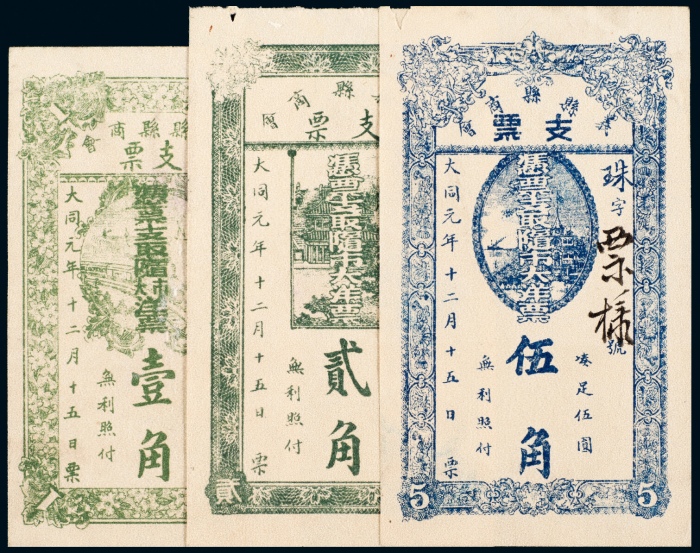 縣縣商會
支票
大同元年十二月十五日票
壹角
無利照付
縣商會
支票
大同元年十二月十五日票
貳角
無利照付
貳
縣縣商會
支票
珠字
票樣
號
憑票支取隨市大洋票
大同元年十二月十五日票
伍角
湊足伍圓
無利照付
5
5